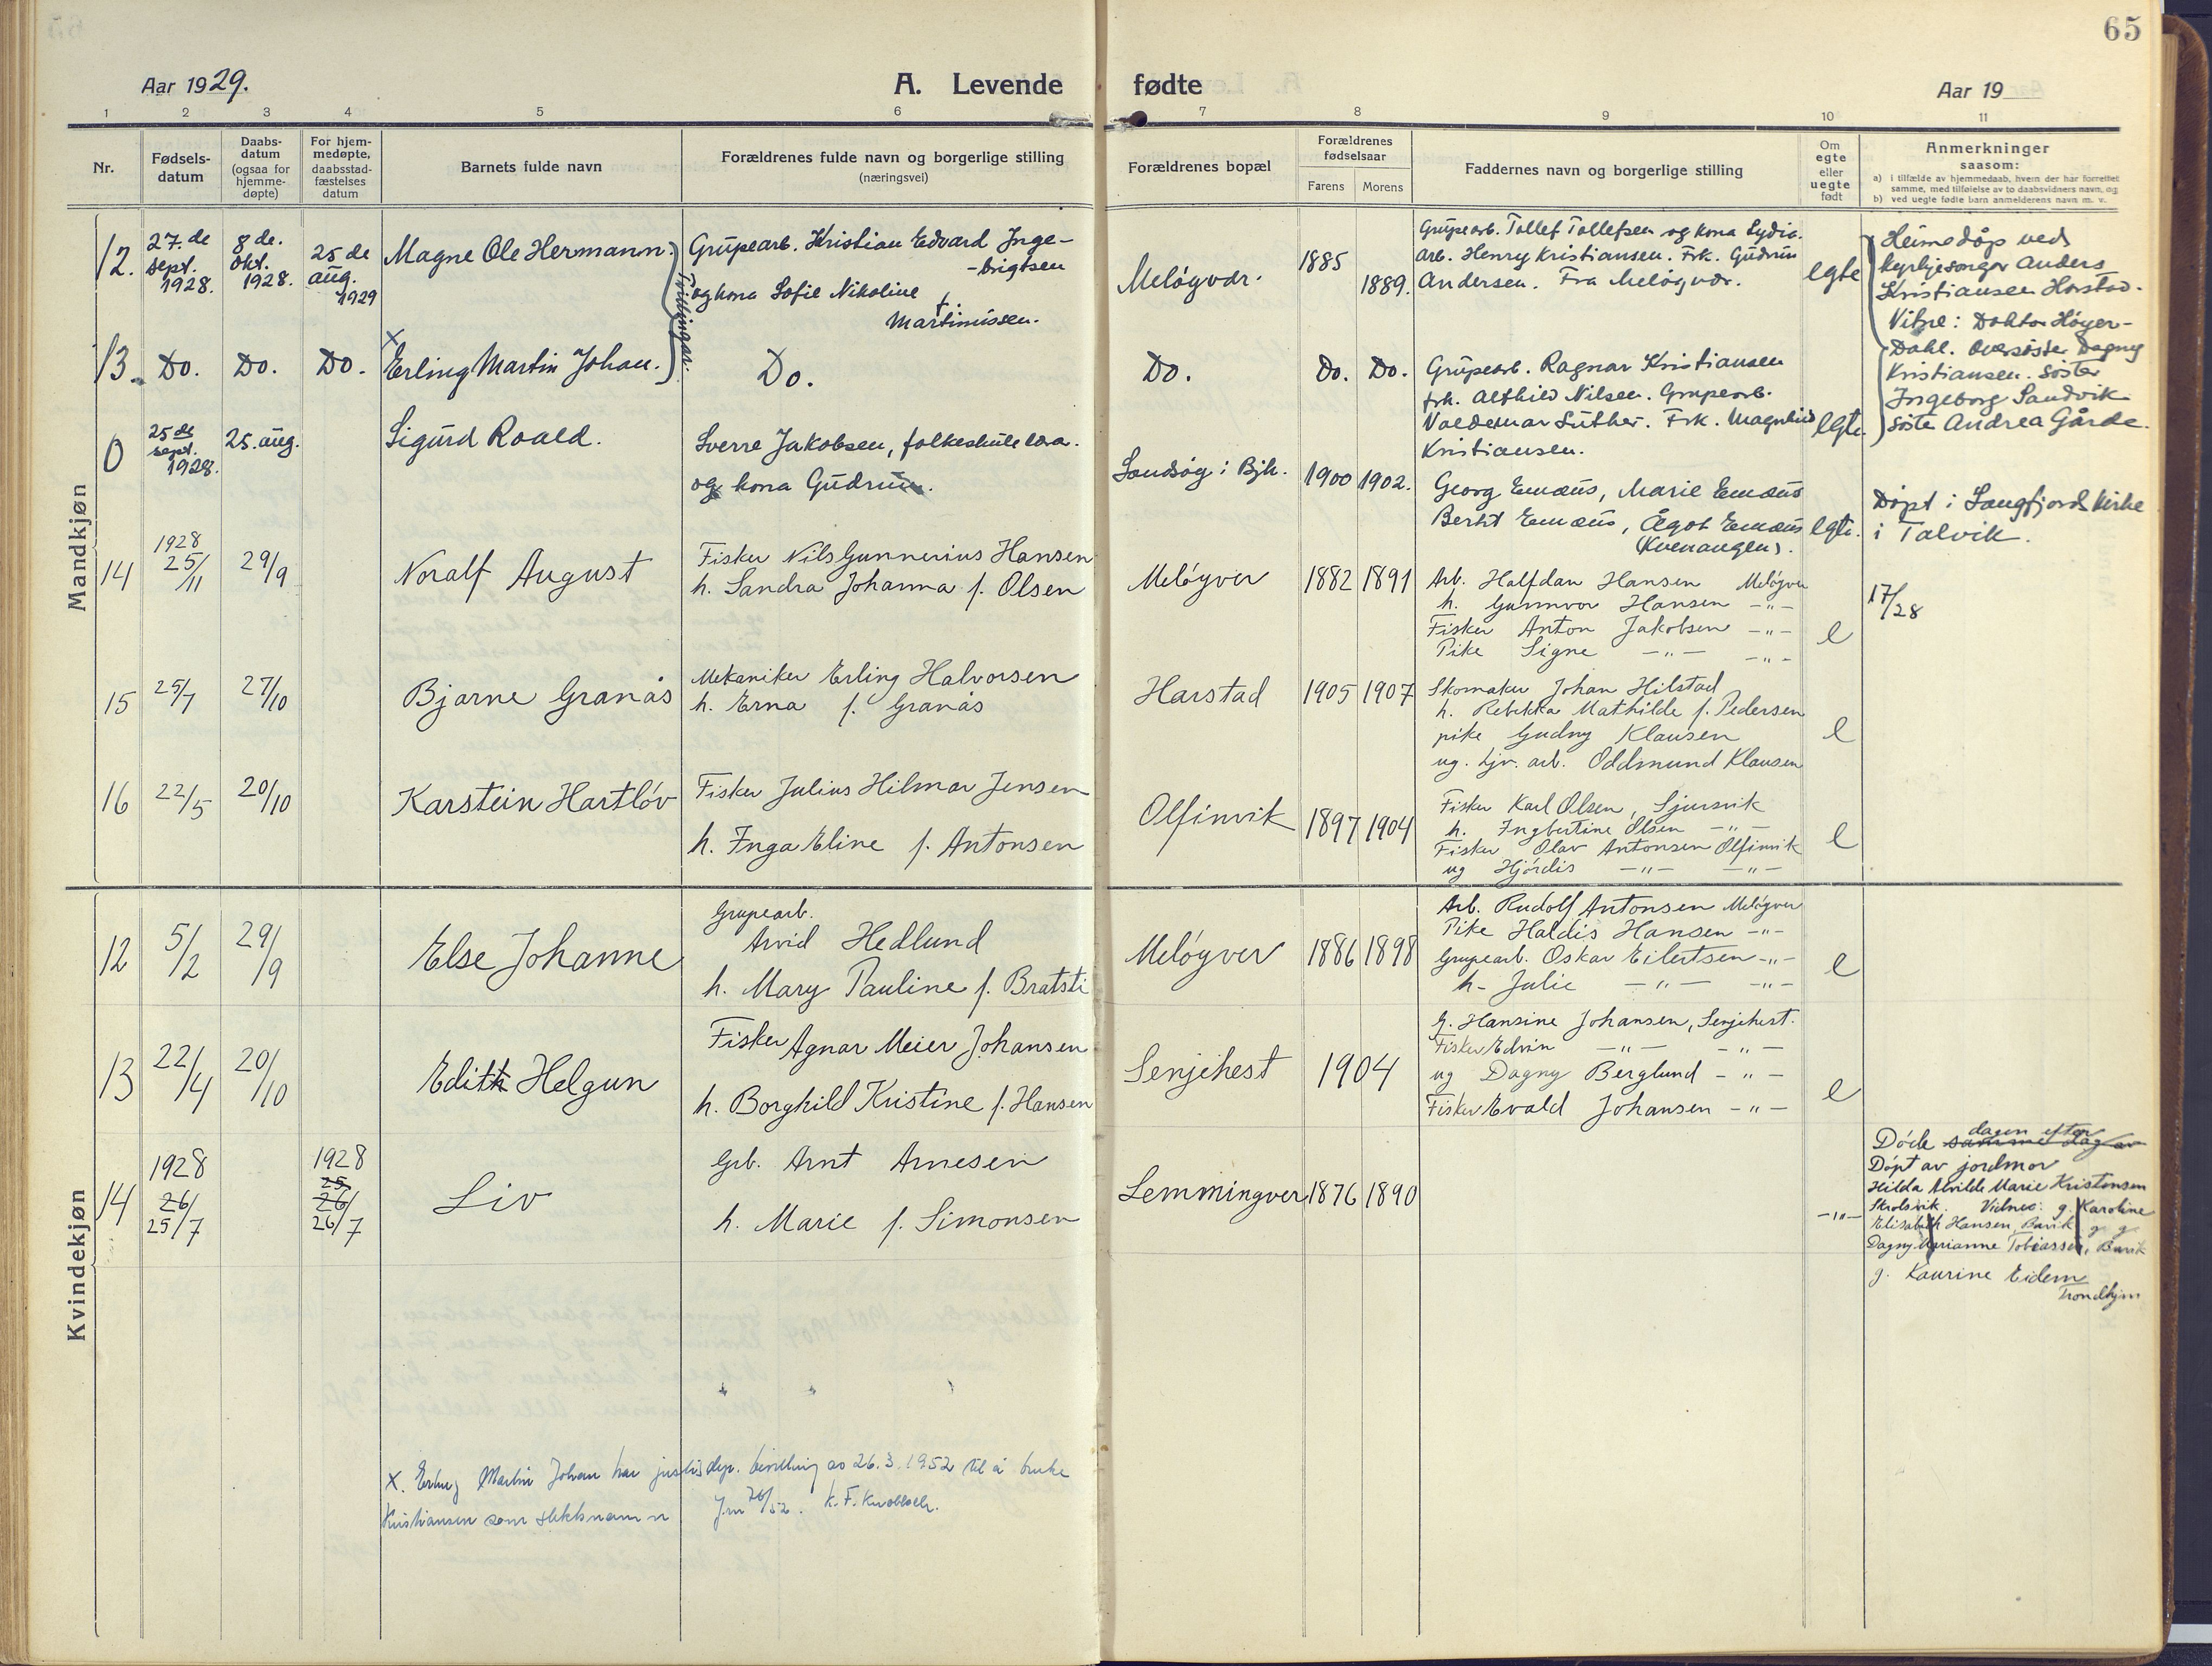 65
Aar 1929.
A. Levende fødte
Aar 19
1 2 3 4 5 6 7 8 9 10 11
Nr.
Fødsels-
datum
Daabs-
datum
(ogsaa for
hjemme-
døpte)
For hjem-
medøpte,
daabsstad-
fæstelses
datum
Barnets fulde navn
Forældrenes fulde navn og borgerlige stilling
(næringsvei)
Forældrenes bopæl
Forældrenes
fødselsaar
Farens Morens
Faddernes navn og borgerlige stilling
Om
egte
eller
uegte
født
Anmerkninger
saasom:
a) i tilfælde av hjemmedaab, hvem der har forrettet
samme, med tilføielse av to daabsvidners navn, og
b) ved uegte fødte barn anmelderens navn m. v.
Mandkjøn
12.
27. de
sept.
1928.
8 de.
okt.
1928.
25 de
aug.
1929
Magne Ole Hermann.
Tvillingar.
Grupearb. Kristian Edvard Inge-
-brigtsen
og kona Sofie Nikoline f.
Martinussen.
Meløyvær.
1885
1889.
Grupearb. Tollef Tollefsen og kona Lydia.
Arb. Henry Kristiansen. Frk. Gudrun
Andersen. Fra Meløyvær.
egte
Heimedåp ved
kyrkjesongar Anders
Kristiansen Harstad.
Vitne: Doktor Høyer-
Dahl. Oversøster Dagny
Kristiansen. Søster
Ingeborg Sandvik
Søster Andrea Gårde.
13.
Do. Do. Do.
x
Erling Martin Johan.
Do.
Do.
Do. Do.
Grupearb. Ragnar Kristiansen
frk. Alfhild Nilsen. Grupearb.
Valdemar Luther. Frk. Magnhild
Kristiansen.
egte.
0
25 de
sept.
1928.
25. aug.
Sigurd Roald.
Sverre Jakobsen, folkeskulelærar.
og kona Gudrun.
Sandsøy i Bjk.
1900 1902.
Georg Emaus, Marie Emaus
Berht Emaus, Ågot Emaus
(Kvenangen).
egte.
Døpt i Langfjord kirke
i Talvik.
14
1928
25/11
29/9
Noralf August
Fisker Nils Gunnerius Hansen
h. Sandra Johanna f. Olsen
Meløyver
1882 1891
Arb. Halfdan Hansen Meløyver
h. Gunnvor Hansen —"—
Fisker Anton Jakobsen —"—
Pike Signe —"— —"—
e
17/28
15
25/7
27/10
Bjarne Granås
Mekaniker Erling Halvorsen
h. Erna f. Granås
Harstad
1905 1907
Skomaker Johan Hilstad
h. Rebekka Mathilde f. Pedersen
pike Gudny Klausen
ug. hjv. arb. Oddmund Klausen
e
16
22/5
20/10
Karstein Hartløv
Fisker Julius Hilmar Jensen
h. Inga Eline f. Antonsen
Olfinvik
1897 1904
Fisker Karl Olsen, Sjursvik
h. Ingbertine Olsen —"—
Fisker Olav Antonsen Olfinvik
ug Hjørdis —"— —"—
e
Kvindekjøn
12
5/2
29/9
Else Johanne
Grupearb.
Arvid Hedlund
h. Mary Pauline f. Bratsti
Meløyver
1886 1898
Arb. Rudolf Antonsen Meløyver
Pike Haldis Hansen —"—
Grupearb. Oskar Eilertsen —"—
h. Julie —"— —"—
e
13
22/4
20/10
Edith Helgun
Fisker Agnar Meier Johansen
h. Borghild Kristine f. Hansen
Senjehest
1904
G. Hansine Johansen, Senjehest.
Fisker Edvin —"— —"—
ug Dagny Berglund —"—
Fisker Evald Johansen —"—
e
14
1928
26/
25/7
1928
25
26/
26/7
Liv
Grb. Arnt Arnesen
h. Marie f. Simonsen
Lemmingver
1876 1890
—"—
Døde samme dag av
dagen efter
Døpt av jordmor
Hilda Alvilde Marie Kristensen
Skrolsvik. Vidner: g. Karoline
Elisabeth Hansen, Buvik g. g.
Dagny Marianne Tobiassen, Buvik
g. Kaurine Eidem
Trondhjem
x. Erling Martin Johan har justisdep. bevilling av 26.3.1952 til å bruke
Kristiansen som slektsnamn Jrn 76/52. K. F. Knoblach.